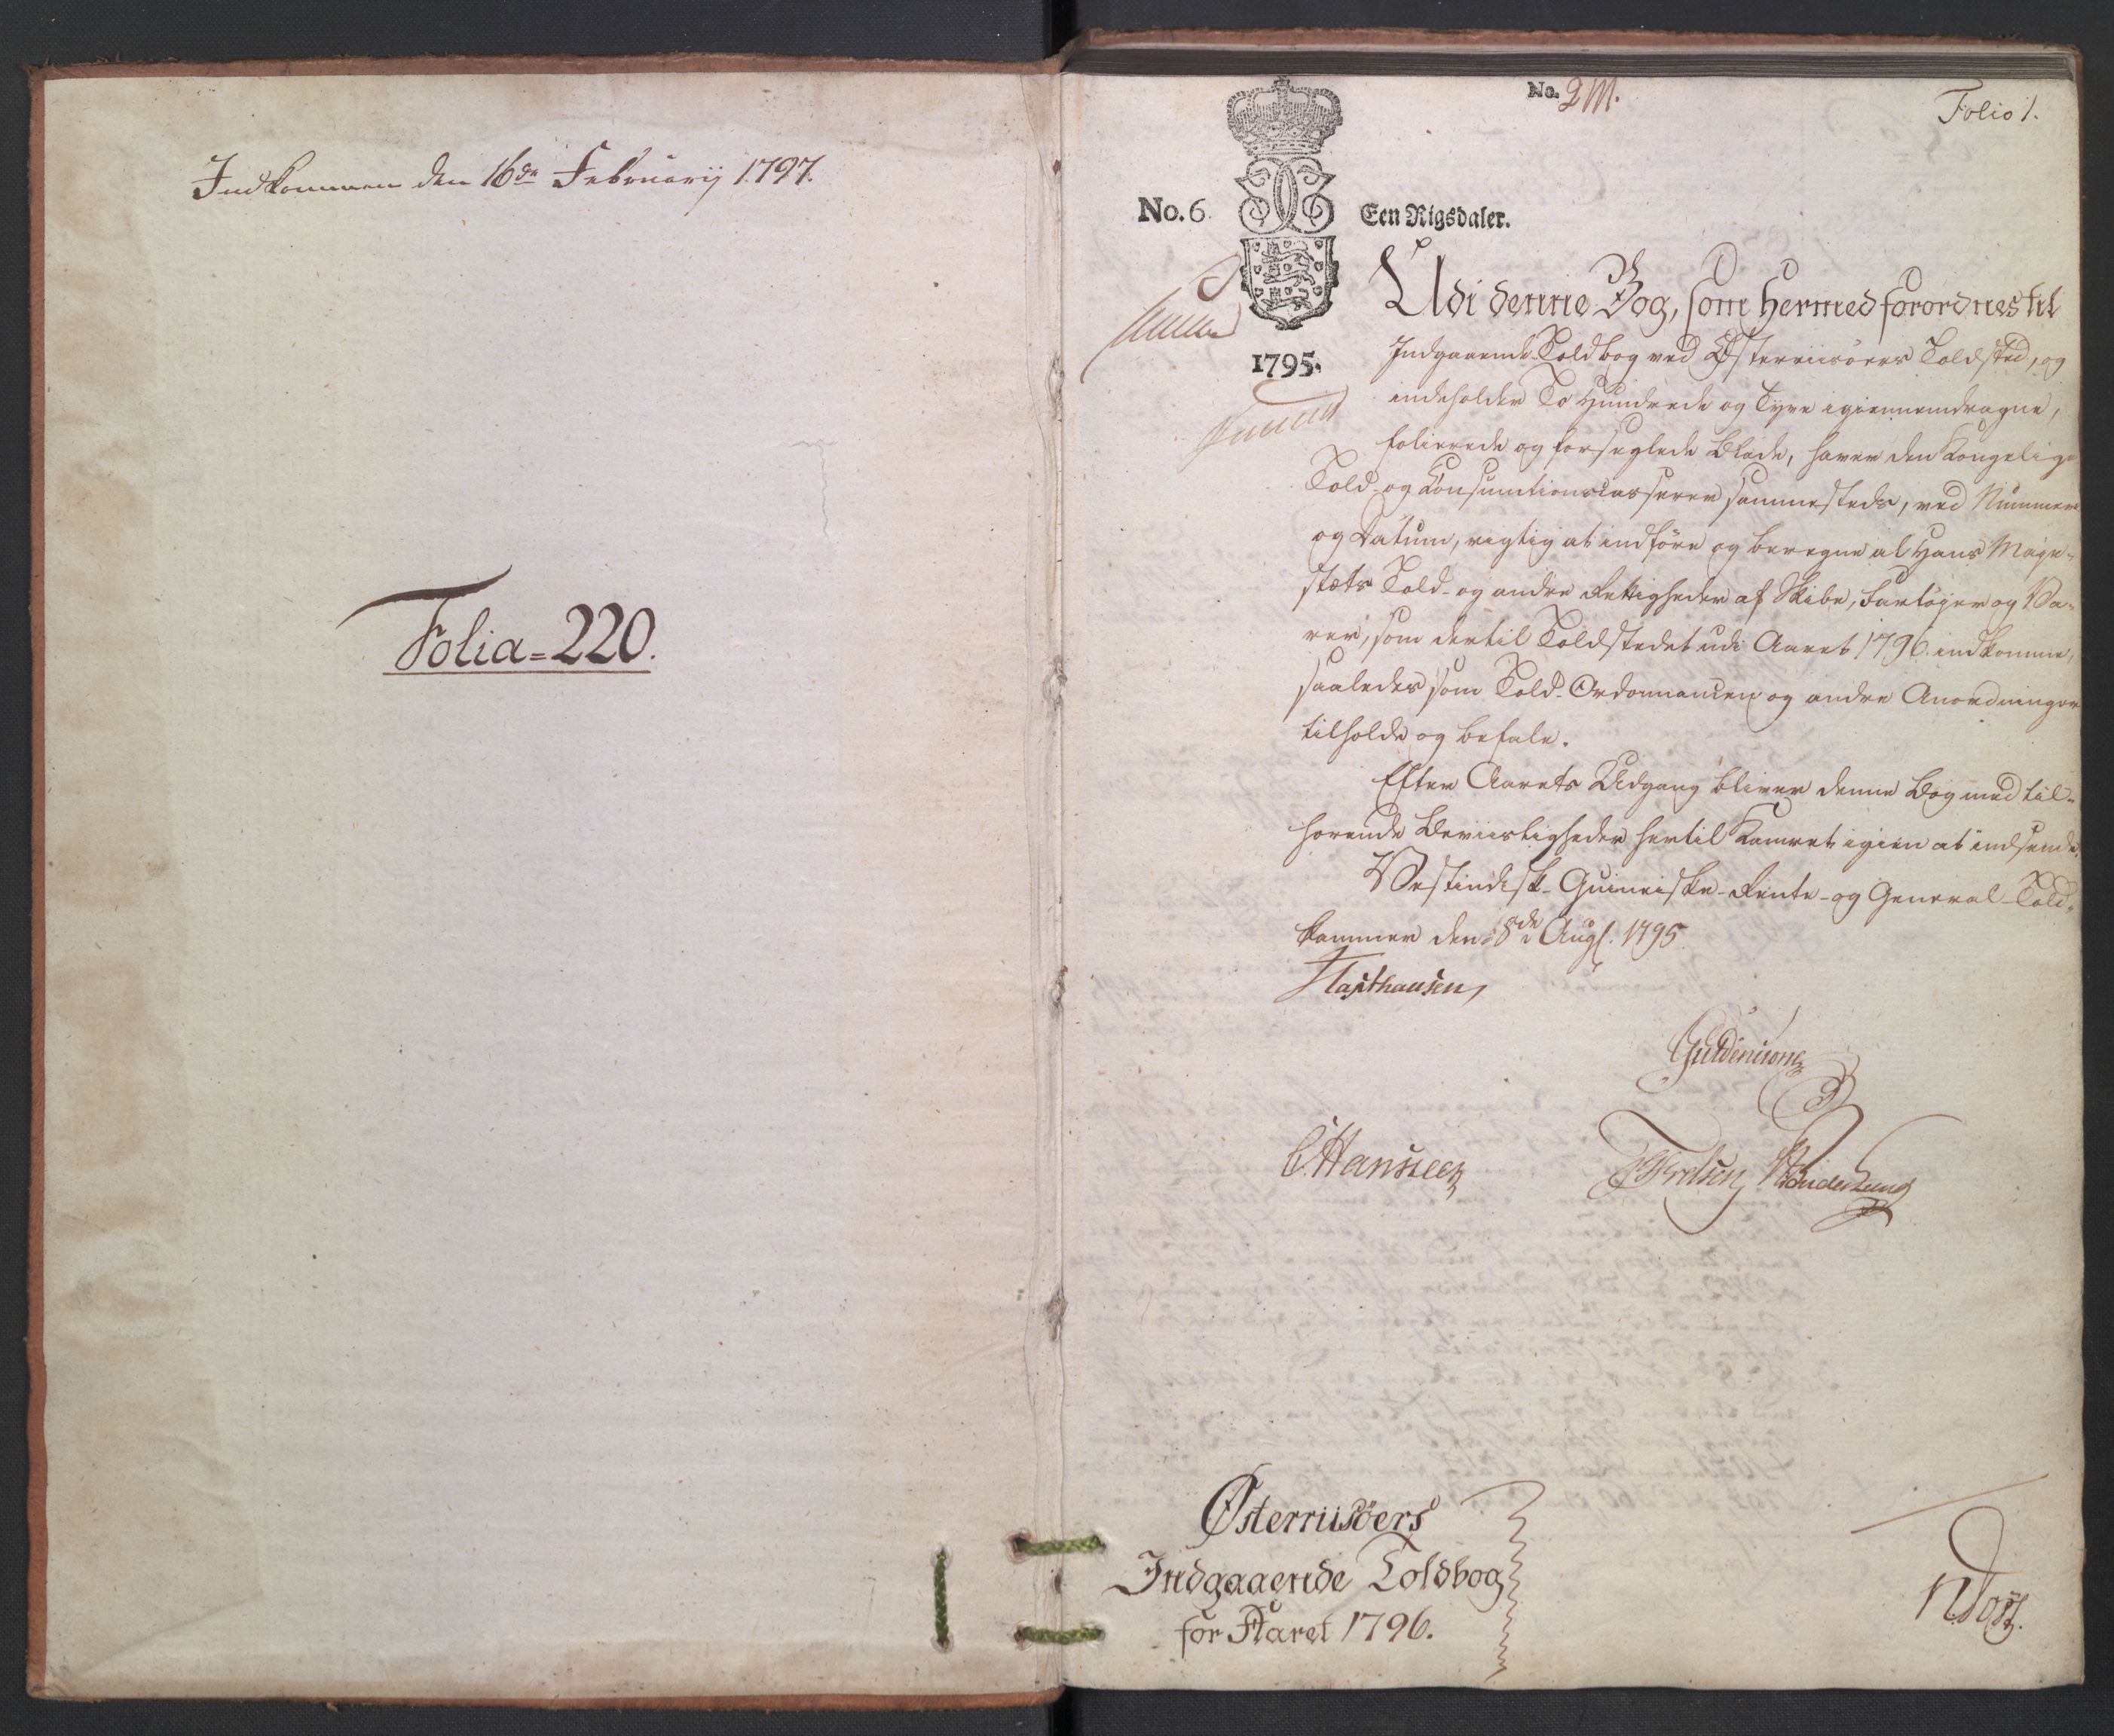 Indkommen den 16de Februarij 1797.
Folia = 220.
No. 2 M.
Folio 1.
No. 6.
Een Rigsdaler.
1795.
Udi denne Bog, som hermed forordnes til
Indgaaende Toldbog ved Østerriisöers Toldsted, og
indeholder To Hundrede og Tyve igiennemdragne,
folierede og forseglede Blade, haver den Kongelige
Told- og Consumtionscasserer sammesteds, ved Nummer
og Datum, rigtig at indføre og beregne al Hans Maje-
stæts Told- og andre Rettigheder af Skibe, Fartøjer og Va-
rer, som dertil Toldstedet udi Aaret 1796. indkomme,
saaledes som Told-Ordonnancen og andre Anordninger
tilholde og befale.
Efter Aarets Udgang bliver denne Bog med til-
hørende Beviisligheder hertil Kamret igien at indsende.
Vestindisk-Guineiske-Rente- og General-Told-
kammer den 8de Augs. 1795.
Haxthausen,
Güldencrone
C. Hansteen
Østerriisöers
Indgaaende Toldbog
for Aaret 1796.